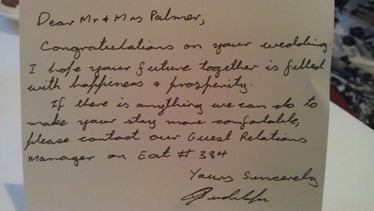 Dear Mr & Mrs Palmer,
Congratulations on your wedding.
I hope your future together is filled
with happiness & prosperity.
If there is anything we can do to
make your stay more comfortable,
please contact our Guest Relations
Manager on Ext # 384
Yours Sincerely